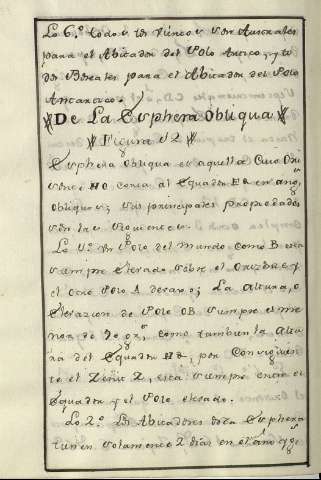 Lo 6.º todos los Vientos son Australes
para el Abitador del Polo Artico; y to
dos Boreales para el Abitador del Polo
Antartico.
De La Esphera Obliqua
Figura 12
Esphera Obliqua es aquella Cuio Ori
sonte HO corta al Equador EQ en ang.
obliquos; sus principales propiedades
son las siguientes.
Lo 1.º un Polo del mundo como B esta
siempre elevado sobre el Orizonte y
el otro Polo A debaxo; La Altura, o
Elevazion de Polo OB siempre es me
nor de 90 gr.ˢ como tambien la Altu
ra del Equador HE, por Consiguien
te el Zenit Z, esta siempre entre el
Equador y el Polo elevado.
Lo 2.º Los Abitadores desta Esphera
tienen solamente 2 dias en el año y